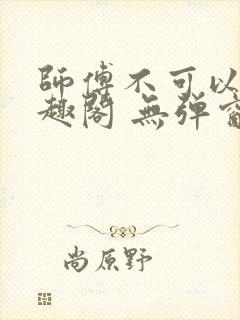 師傅不可以
趣閣 無彈
尚原野